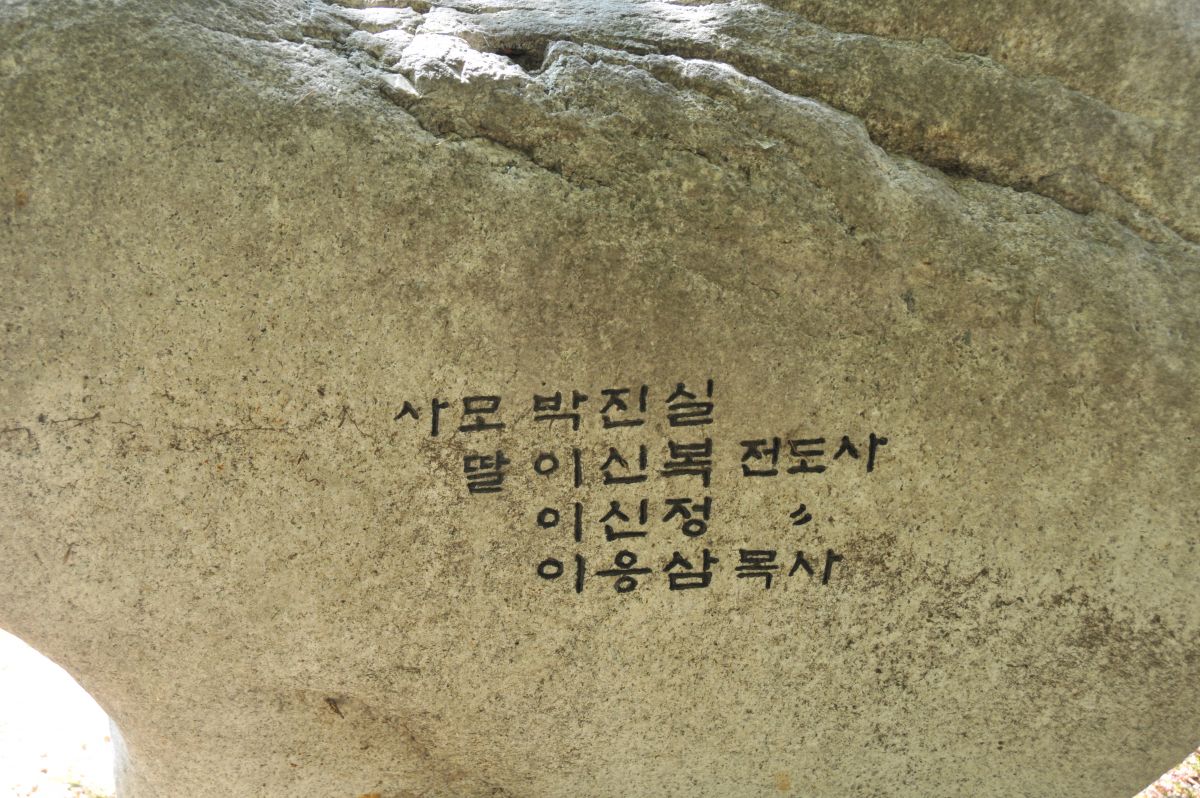 사모 박진실
딸 이신복 전도사
이신정 〃
이응삼 목사